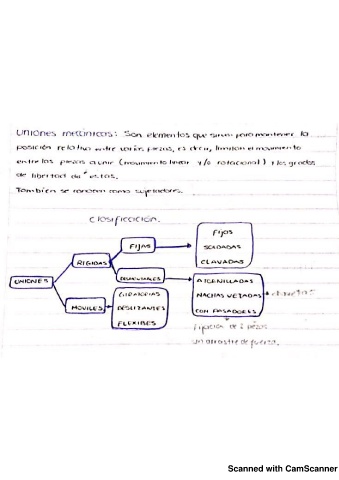 Uniones mecánicas: Son elementos que sirven para mantener la
posición relativa entre varias piezas, es decir, limitan el movimiento
entre las piezas a unir (movimiento lineal y/o rotacional) y los grados
de libertad de estas.
También se conocen como sujetadores.
Clasificación.
UNIONES
RIGIDAS
FIJAS
FIJOS
SOLDADAS
CLAVADAS
DESMONTABLES
ATORNILLADAS
MACHIHEMBRADAS
CON PASADORES
MOVILES
GIRATORIAS
DESLIZANTES
FLEXIBLES
fijación de 2 piezas
un arrastre de fuerza.
Scanned with CamScanner